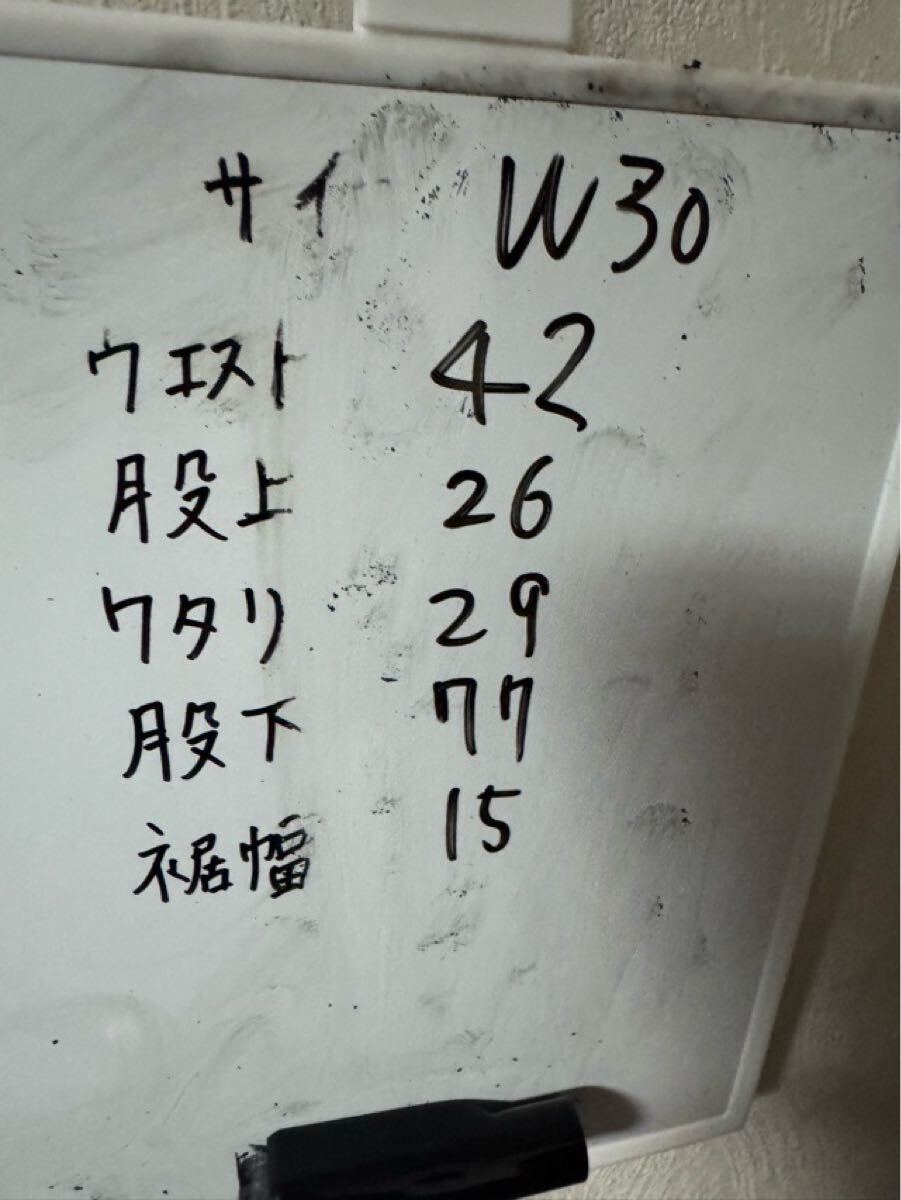 サイ W30
ウエスト 42
股上 26
ワタリ 29
股下 77
裾幅 15